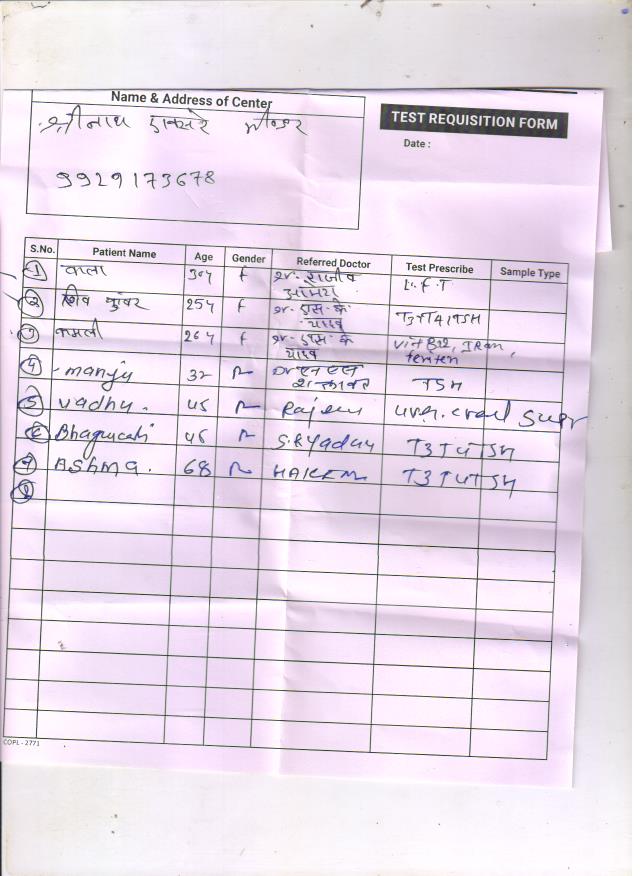 Name & Address of Center
श्रीनाथ एक्सरे
TEST REQUISITION FORM
Date :
9929173678
S.No. Patient Name Age Gender Referred Doctor Test Prescribe Sample Type
1 काला 30y F डॉ. राजीव L.F.T
2 शिव कुंवर 25y F डॉ. एस. के यादव T3T4TSH
3 कमली 26y F डॉ. एस. के यादव Vit B12, IRon,
4 manju 32 TSH
5 Vadhu. 45 Rajeev
6 Bhagwati 46 S.R yadav T3 T4 TSH
7 ASHMA. 68 HAKEEM T3 T4 TSH
8
COPL - 2771